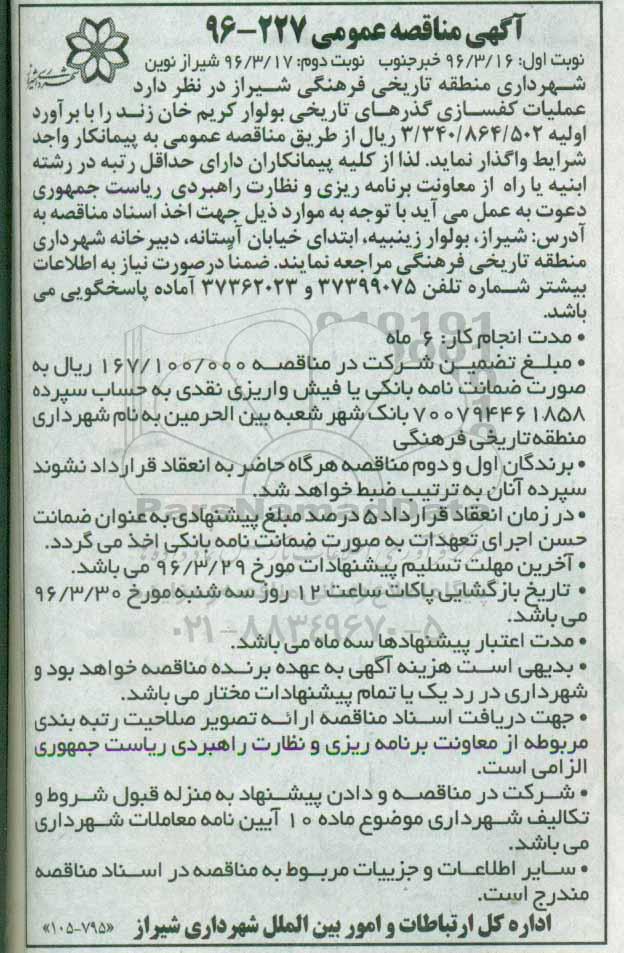 آگهی مناقصه عمومی ۲۲۷-۹۶
نوبت اول: ۹۶/۳/۱۶ خبرجنوب نوبت دوم: ۹۶/۳/۱۷ شیراز نوین
شهرداری منطقه تاریخی فرهنگی شیراز در نظر دارد
عملیات کفسازی گذرهای تاریخی بولوار کریم خان زند را با برآورد
اولیه ۳/۳۴۰/۸۶۴/۵۰۲ ریال از طریق مناقصه عمومی به پیمانکار واجد
شرایط واگذار نماید. لذا از کلیه پیمانکاران دارای حداقل رتبه در رشته
ابنیه یا راه از معاونت برنامه ریزی و نظارت راهبردی ریاست جمهوری
دعوت به عمل می آید با توجه به موارد ذیل جهت اخذ اسناد مناقصه به
آدرس: شیراز، بولوار زینبیه، ابتدای خیابان آستانه، دبیرخانه شهرداری
منطقه تاریخی فرهنگی مراجعه نمایند. ضمناً درصورت نیاز به اطلاعات
بیشتر شماره تلفن ۳۷۳۹۹۰۷۵ و ۳۷۳۶۲۰۲۳ آماده پاسخگویی می
باشد.
• مدت انجام کار: ۶ ماه
• مبلغ تضمین شرکت در مناقصه ۱۶۷/۱۰۰/۰۰۰ ریال به
صورت ضمانت نامه بانکی یا فیش واریزی نقدی به حساب سپرده
۷۰۰۷۹۴۴۶۱۸۵۸ بانک شهر شعبه بین الحرمین به نام شهرداری
منطقه تاریخی فرهنگی
• برندگان اول و دوم مناقصه هرگاه حاضر به انعقاد قرارداد نشوند
سپرده آنان به ترتیب ضبط خواهد شد.
• در زمان انعقاد قرارداد ۵ درصد مبلغ پیشنهادی به عنوان ضمانت
حسن اجرای تعهدات به صورت ضمانت نامه بانکی اخذ می گردد.
• آخرین مهلت تسلیم پیشنهادات مورخ ۹۶/۳/۲۹ می باشد.
• تاریخ بازگشایی پاکات ساعت ۱۲ روز سه شنبه مورخ ۹۶/۳/۳۰
می باشد.
۰۲۱-۸۸۳۴۹۶۷۰-۵
• مدت اعتبار پیشنهادها سه ماه می باشد.
• بدیهی است هزینه آگهی به عهده برنده مناقصه خواهد بود و
شهرداری در رد یک یا تمام پیشنهادات مختار می باشد.
• جهت دریافت اسناد مناقصه ارائه تصویر صلاحیت رتبه بندی
مربوطه از معاونت برنامه ریزی و نظارت راهبردی ریاست جمهوری
الزامی است.
• شرکت در مناقصه و دادن پیشنهاد به منزله قبول شروط و
تکالیف شهرداری موضوع ماده ۱۰ آیین نامه معاملات شهرداری
می باشد.
• سایر اطلاعات و جزییات مربوط به مناقصه در اسناد مناقصه
مندرج است.
اداره کل ارتباطات و امور بین الملل شهرداری شیراز «۷۹۵-۱۰۵»